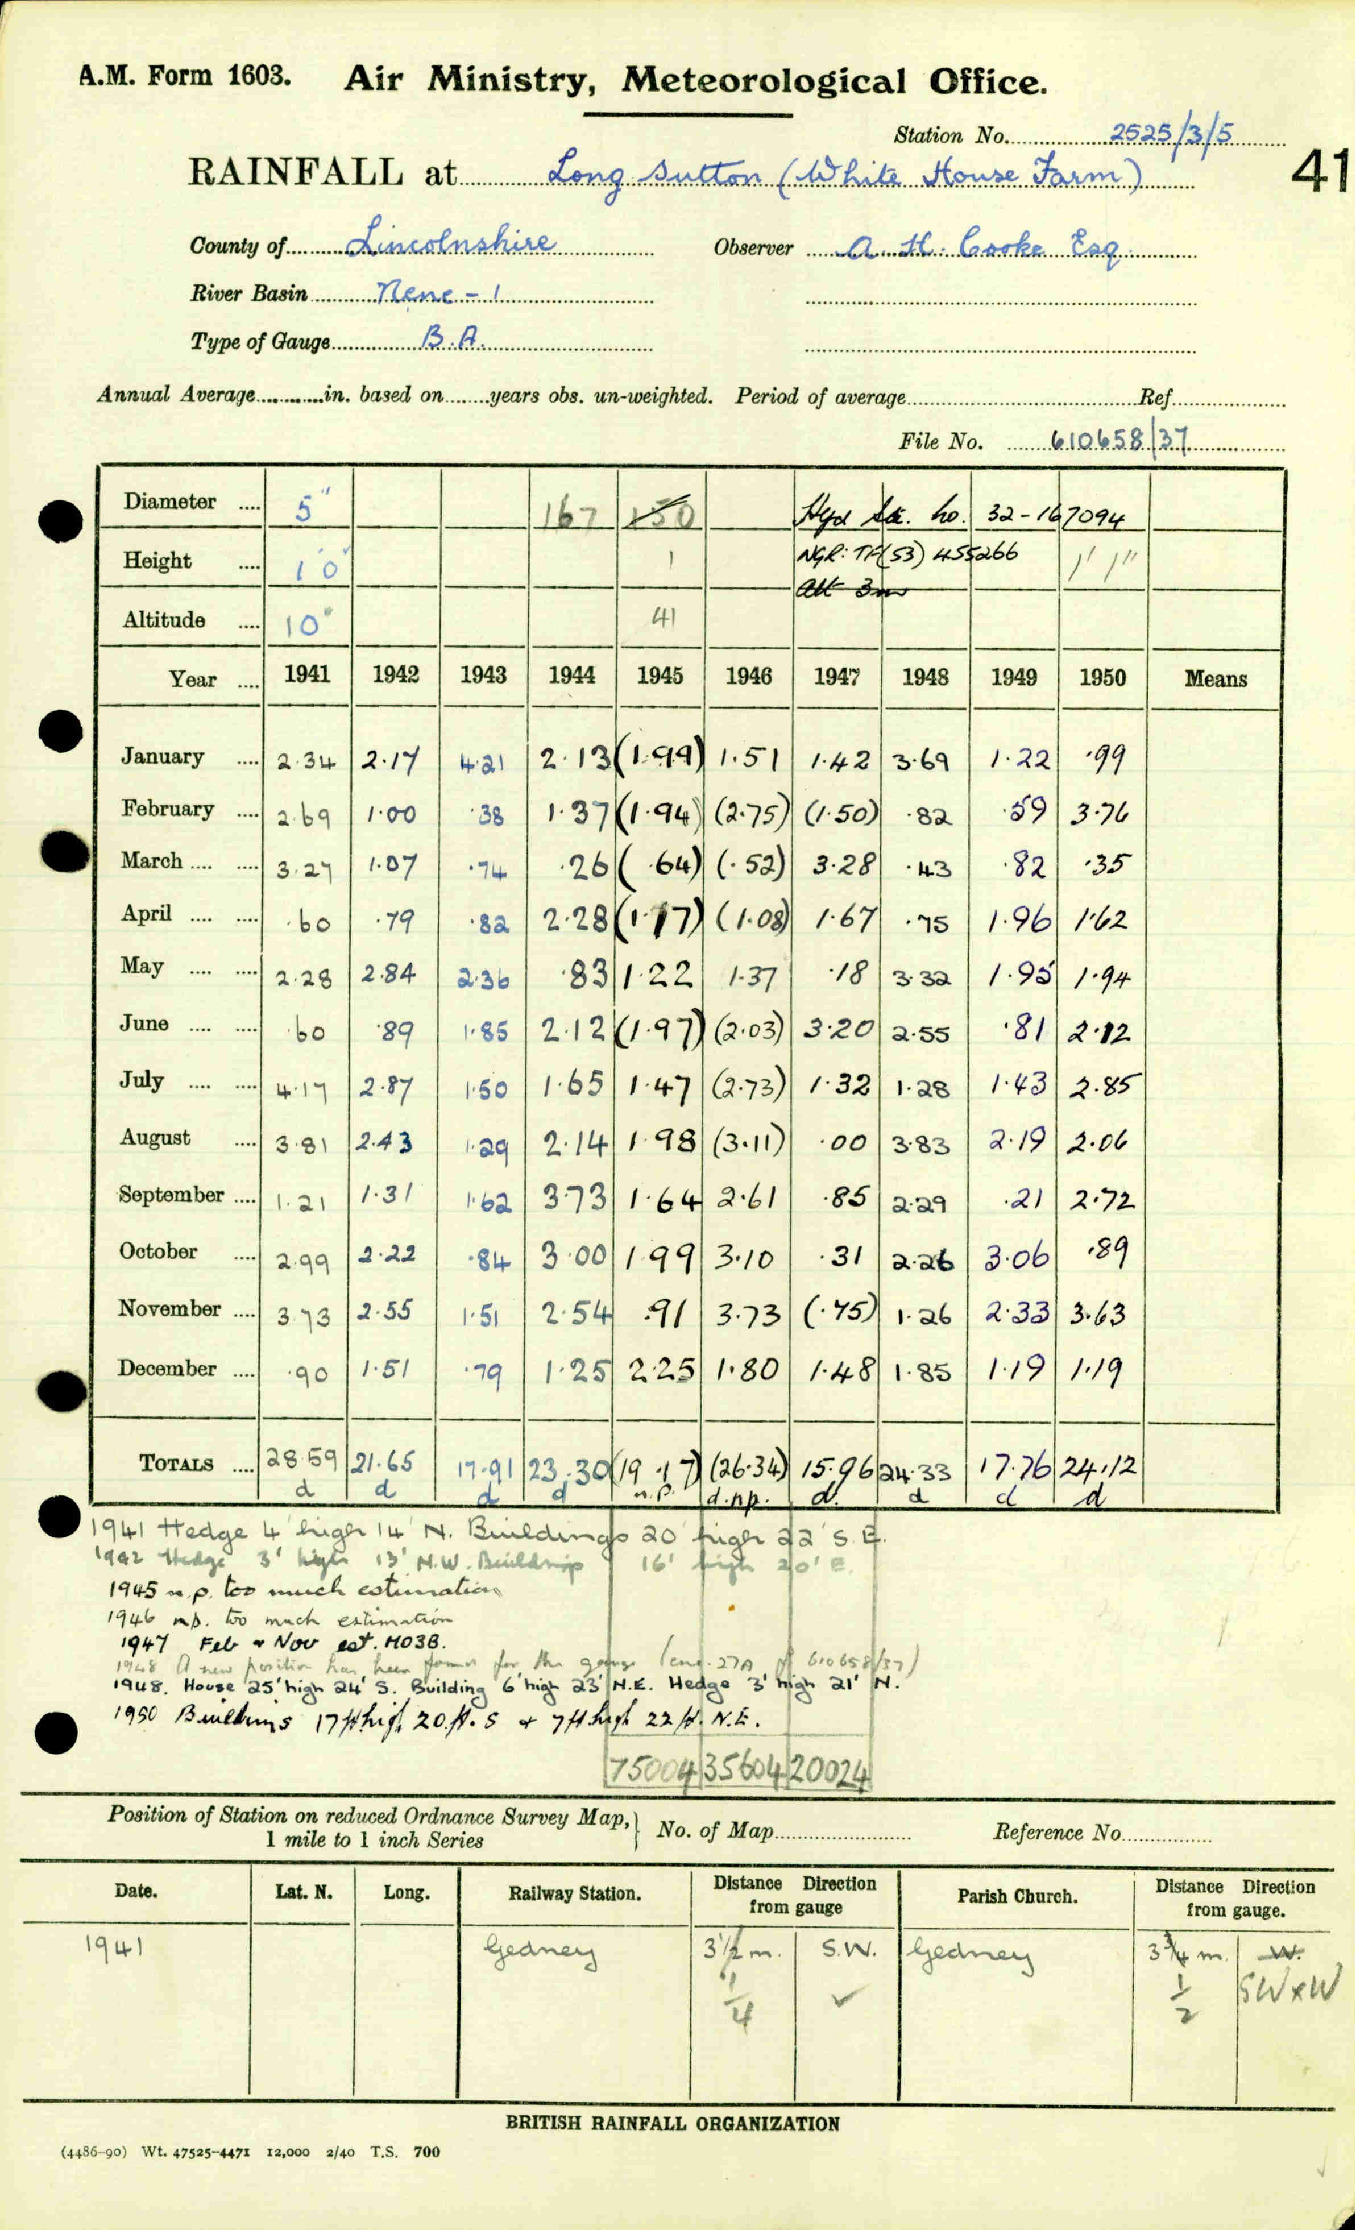 A.M. Form 1603. Air Ministry, Meteorological Office.
Station No. 2525/3/5
41
RAINFALL at Long Sutton (White House Farm)
County of Lincolnshire Observer A. H. Cooke Esq.
River Basin Nene - 1
Type of Gauge B.A.
Annual Average in. based on years obs. un-weighted. Period of average Ref
File No. 610658/37
Diameter .... 5" 167 150 Hyd Sta. No. 32-167094
Height .... 1'0" 1 NGR: TF(53) 455266 1' 1"
Alt 3m
Altitude .... 10" 41
Year .... 1941 1942 1943 1944 1945 1946 1947 1948 1949 1950 Means
January .... 2.34 2.17 4.21 2.13 (1.99) 1.51 1.42 3.69 1.22 .99
February .... 2.69 1.00 .38 1.37 (1.94) (2.75) (1.50) .82 .59 3.76
March .... .... 3.27 1.07 .74 .26 (.64) (.52) 3.28 .43 .82 .35
April .... .... .60 .79 .82 2.28 (1.17) (1.08) 1.67 .75 1.96 1.62
May .... .... 2.28 2.84 2.36 .83 1.22 1.37 .18 3.32 1.95 1.94
June .... .... .60 .89 1.85 2.12 (1.97) (2.03) 3.20 2.55 .81 2.12
July .... .... 4.17 2.87 1.50 1.65 1.47 (2.73) 1.32 1.28 1.43 2.85
August .... 3.81 2.43 1.29 2.14 1.98 (3.11) .00 3.83 2.19 2.06
September .... 1.21 1.31 1.62 3.73 1.64 2.61 .85 2.29 .21 2.72
October .... 2.99 2.22 .84 3.00 1.99 3.10 .31 2.26 3.06 .89
November .... 3.73 2.55 1.51 2.54 .91 3.73 (.75) 1.26 2.33 3.63
December .... .90 1.51 .79 1.25 2.25 1.80 1.48 1.85 1.19 1.19
TOTALS .... 28.59 21.65 17.91 23.30 (19.17) (26.34) 15.96 24.33 17.76 24.12
d d d d n.p. d.np. d. d d d
1941 Hedge 4' high 14' N. Buildings 20' high 22' S.E.
1942 Hedge 3' high 13' N.W. Buildings 16' high 20' E.
1945 n.p. too much estimation
1946 n.p. too much estimation
1947 Feb & Nov est. MO3B.
1948 A new position has been found for the gauge (enc. 27A of 610658/37)
1948. House 25' high 24' S. Building 6' high 23' N.E. Hedge 3' high 21' N.
1950 Buildings 17 ft high 20 ft. S + 7 ft high 22 ft. N.E.
75004 35604 20024
Position of Station on reduced Ordnance Survey Map, } No. of Map Reference No
1 mile to 1 inch Series
Date. Lat. N. Long. Railway Station. Distance Direction from gauge Parish Church. Distance Direction from gauge.
1941 Gedney 3 1/2 m. S.W. Gedney 3 3/4 m. W.
1/4 ✓ 1/2 SWxW
BRITISH RAINFALL ORGANIZATION
(4486-90) Wt. 47525-4471 12,000 2/40 T.S. 700